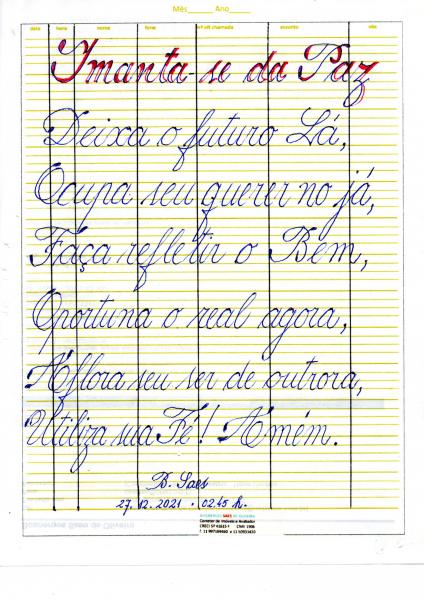 Mês_____ Ano____
data hora nome fone nº da chamada assunto obs
Imanta-se da Paz
Deixa o futuro Lá,
Ocupa seu querer no já,
Faça refletir o Bem,
Oportuna o real agora,
Aflora seu ser de outrora,
Utiliza sua Fé! Amém.
B. Saes
27.12.2021 . 02,45 h.
SAES
Corretor de Imóveis e Avaliador